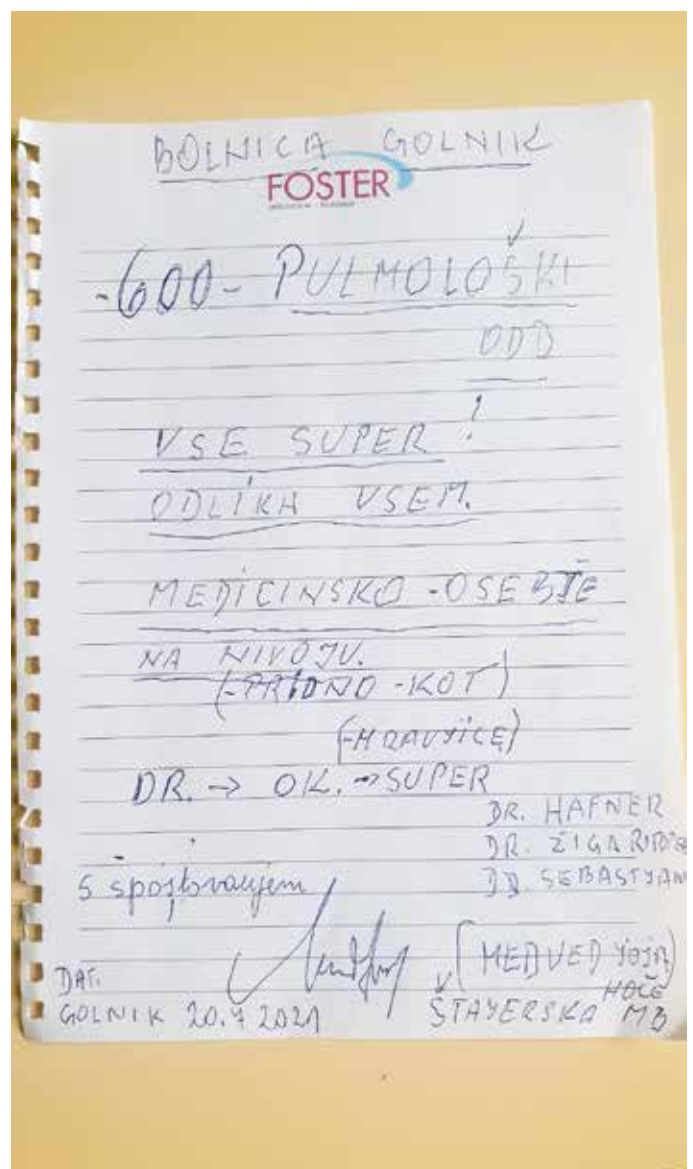 BOLNICA GOLNIK
FOSTER
-600- PULMOLOŠKI
ODD
VSE SUPER!
ODLIKA VSEM.
MEDICINSKO-OSEBJE
NA NIVOJU.
(-PRIDNO-KOT)
(-MRAVJICE)
DR. → OK. → SUPER
DR. HAFNER
DR. ŽIGA
DR. SEBASTJAN
S spoštovanjem
(MEDVED JOJA)
DAT.
HOČE
GOLNIK 20.4 2021 ŠTAJERSKA MB